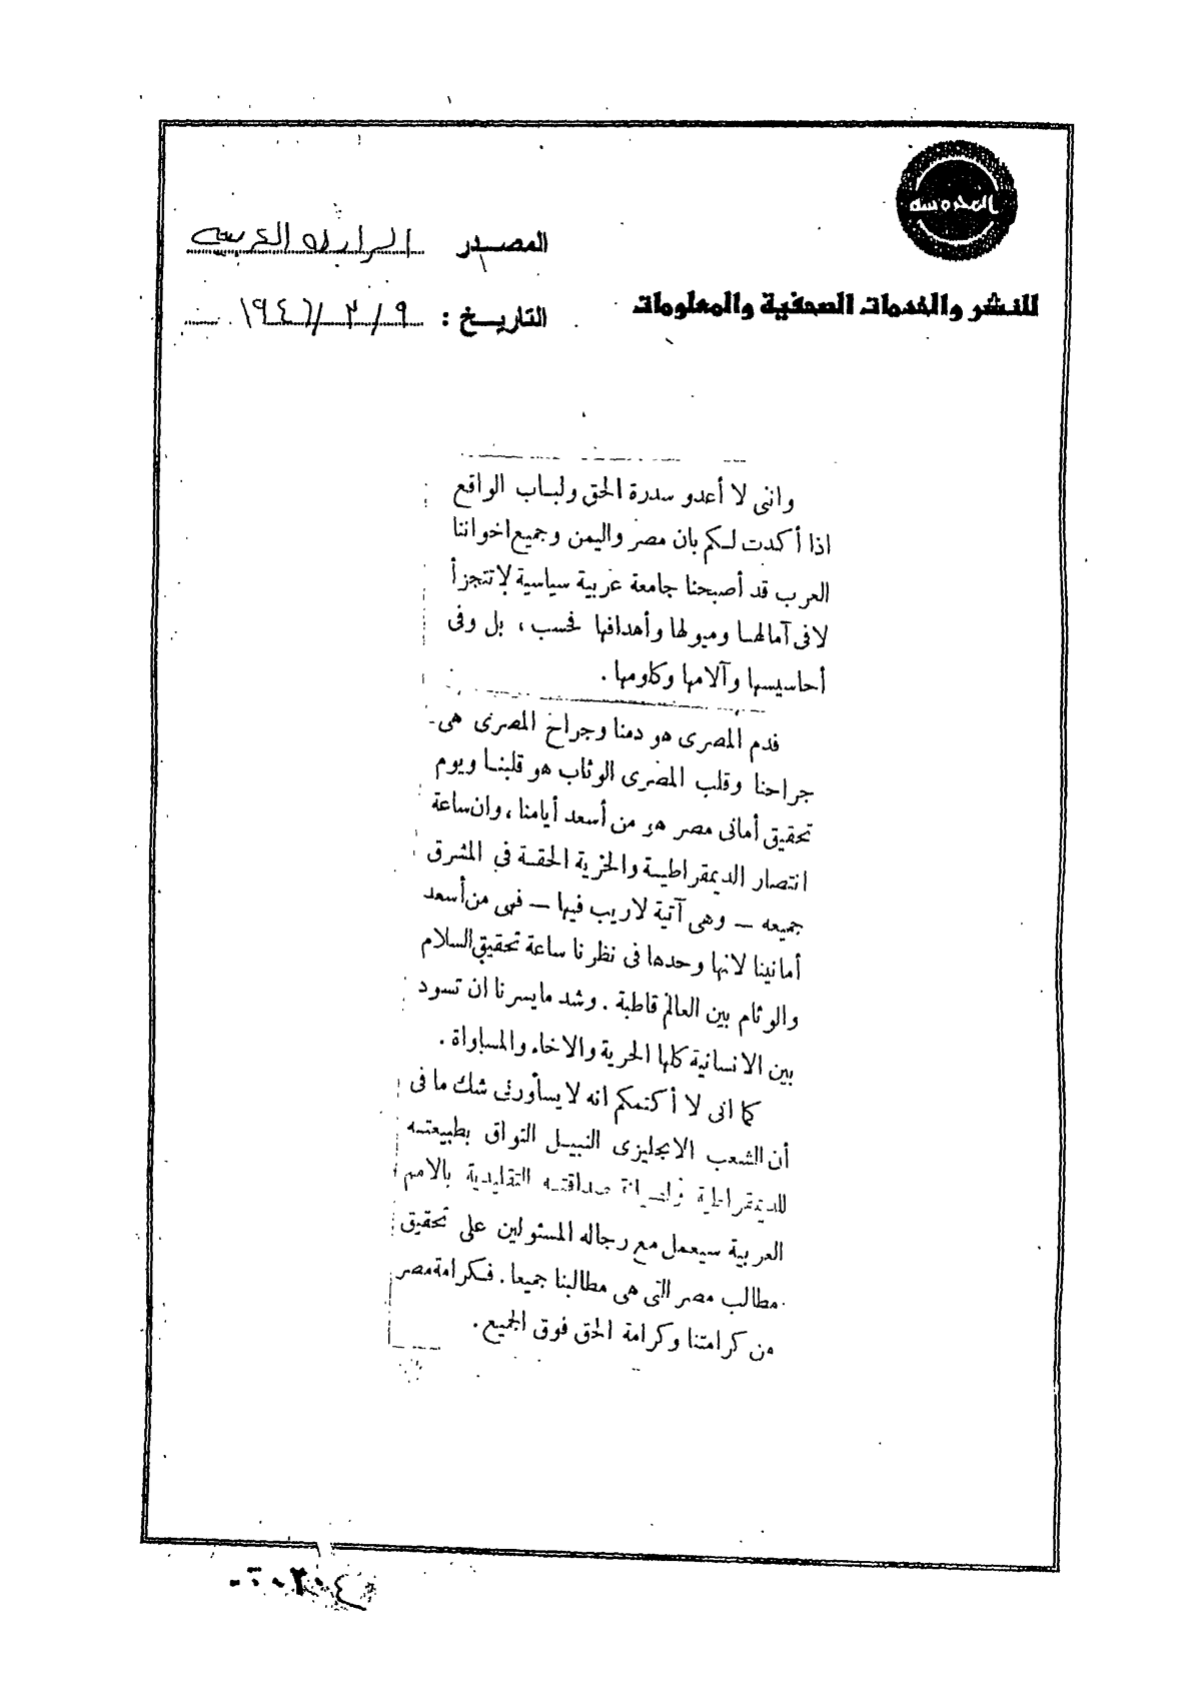 المحروسة
للنشر والخدمات الصحفية والمعلومات
المصدر الرابطة العربية
التاريخ : ٩ / ٣ / ١٩٤٦
وانى لا أعدو سدرة الحق ولباب الواقع
اذا أكدت لكم بان مصر واليمن وجميع اخواننا
العرب قد أصبحنا جامعة عربية سياسية لا تتجزأ
لا فى آمالها وميولها وأهدافها فحسب ، بل وفى
أحاسيسها وآلامها وكلومها .
فدم المصرى هو دمنا وجراح المصرى هى
جراحنا وقلب المصرى الوثاب هو قلبنا ويوم
تحقيق أمانى مصر هو من أسعد أيامنا ، وان ساعة
انتصار الديمقراطية والحرية الحقة في المشرق
جميعه — وهى آتية لا ريب فيها — فهى من أسعد
أمانينا لانها وحدها فى نظرنا ساعة تحقيق السلام
والوئام بين العالم قاطبة . وشد ما يسرنا ان تسود
بين الانسانية كلها الحرية والاخاء والمساواة .
كما انى لا أكتمكم انه لا يساورنى شك ما فى
أن الشعب الانجليزى النبيل التواق بطبيعته
للديمقراطية صداقته التقليدية بالامم
العربية سيعمل مع رجاله المسئولين على تحقيق
مطالب مصر التى هى مطالبنا جميعا . فكرامة مصر
من كرامتنا وكرامة الحق فوق الجميع .